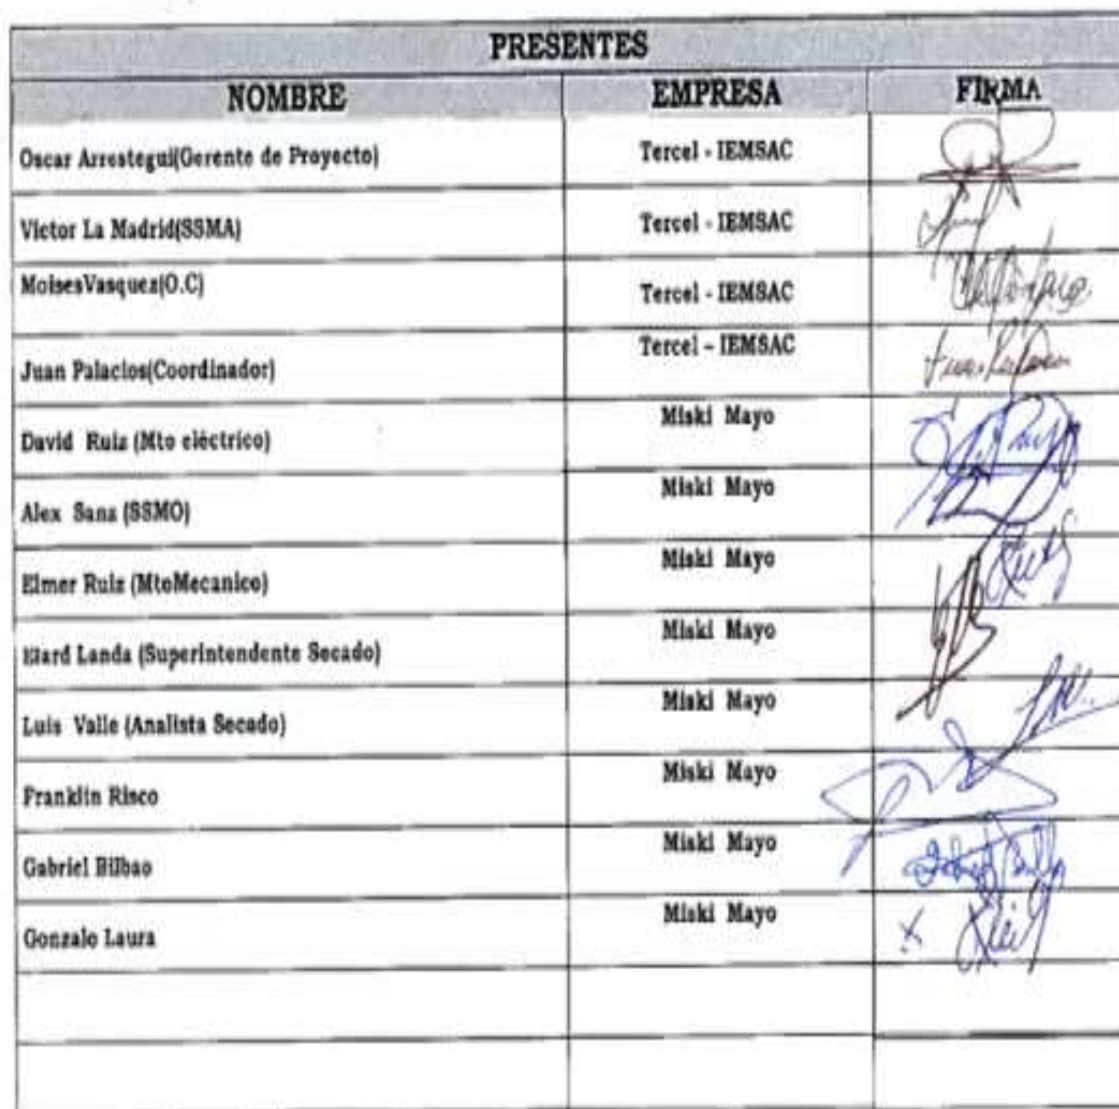 PRESENTES
NOMBRE EMPRESA FIRMA
Oscar Arrestegui(Gerente de Proyecto) Tercel - IEMSAC
Victor La Madrid(SSMA) Tercel - IEMSAC
MoisesVasquez(O.C) Tercel - IEMSAC
Juan Palacios(Coordinador) Tercel – IEMSAC
David Ruiz (Mto eléctrico) Miski Mayo
Alex Sanz (SSMO) Miski Mayo
Elmer Ruiz (MtoMecanico) Miski Mayo
Elard Landa (Superintendente Secado) Miski Mayo
Luis Valle (Analista Secado) Miski Mayo
Franklin Risco Miski Mayo
Gabriel Bilbao Miski Mayo
Gonzalo Laura Miski Mayo